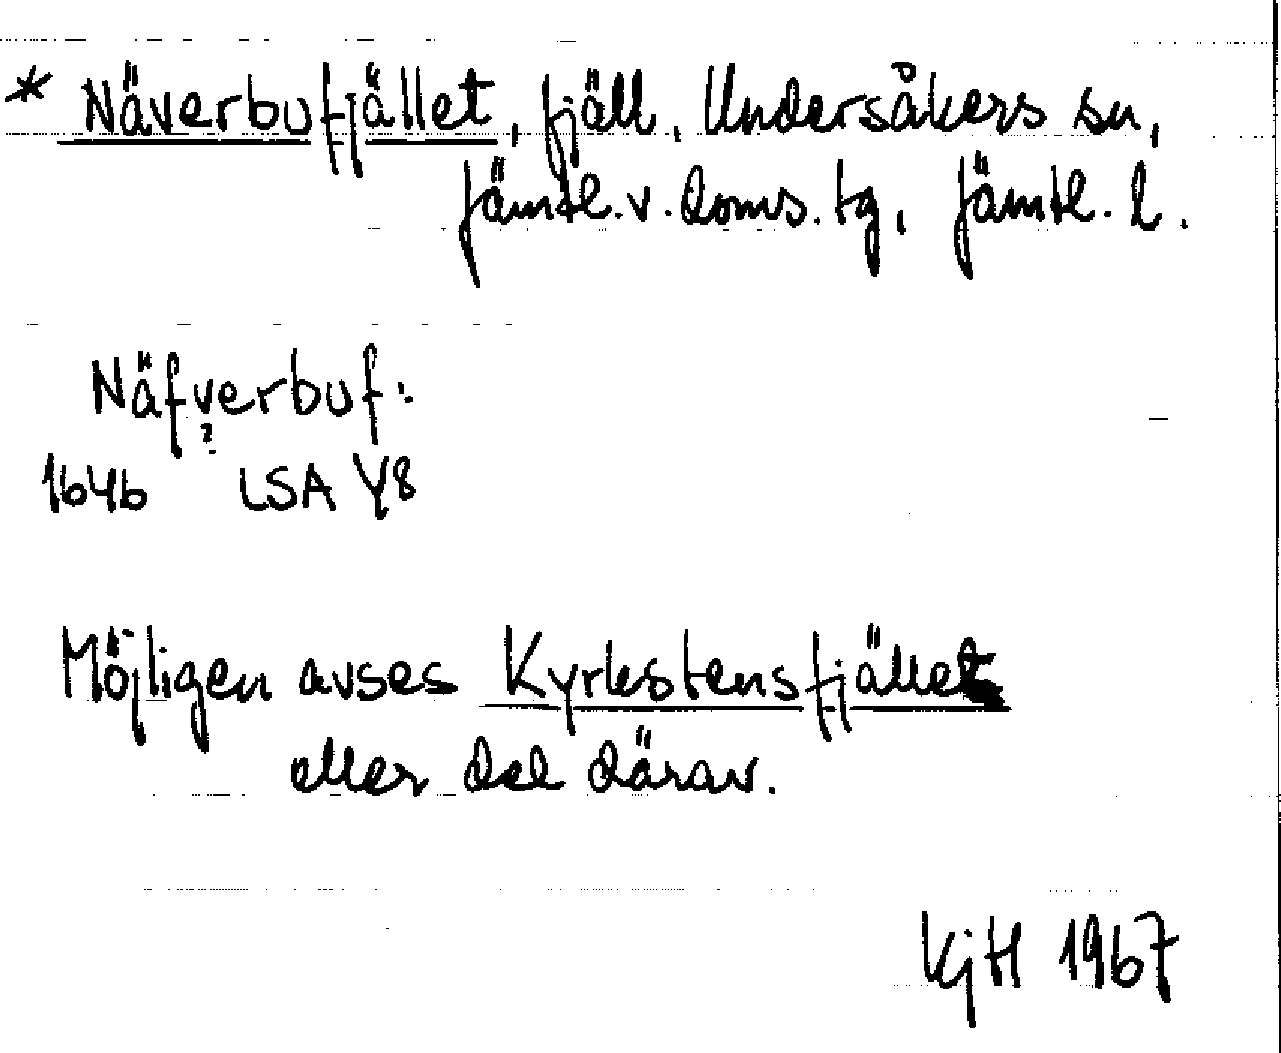 * Näverbufjället, fjäll, Undersåkers sn,
Jämtl. v. doms. tg, Jämtl. l.
Näfverbuf:
?
1646 LSA Y8
Möjligen avses Kyrkstensfjället
eller del därav.
KjH 1967